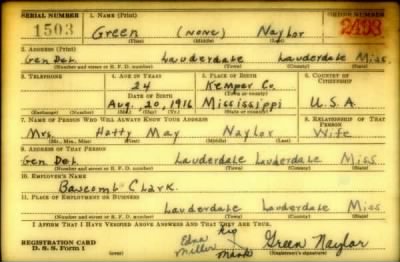 SERIAL NUMBER 1. NAME (Print) ORDER NUMBER
1503 Green (NONE) Naylor 2493
(First) (Middle) (Last)
2. ADDRESS (Print)
Gen Del. Lauderdale Lauderdale Miss.
(Number and street or R. F. D. number) (Town) (County) (State)
3. TELEPHONE 4. AGE IN YEARS 5. PLACE OF BIRTH 6. COUNTRY OF CITIZENSHIP
24 Kemper Co.
DATE OF BIRTH
Aug. 20, 1916 Mississippi U.S.A.
(Exchange) (Number) (Mo.) (Day) (Yr.) (State or country)
7. NAME OF PERSON WHO WILL ALWAYS KNOW YOUR ADDRESS 8. RELATIONSHIP OF THAT PERSON
Mrs. Hatty May Naylor Wife
(Mr., Mrs., Miss) (First) (Middle) (Last)
9. ADDRESS OF THAT PERSON
Gen Del. Lauderdale Lauderdale Miss
(Number and street or R. F. D. number) (Town) (County) (State)
10. EMPLOYER'S NAME
Bascomb Clark.
11. PLACE OF EMPLOYMENT OR BUSINESS
Lauderdale Lauderdale Miss
(Number and street or R. F. D. number) (Town) (County) (State)
I AFFIRM THAT I HAVE VERIFIED ABOVE ANSWERS AND THAT THEY ARE TRUE.
REGISTRATION CARD Edna Miller his mark Green Naylor
D. S. S. Form 1 (Registrant's signature)